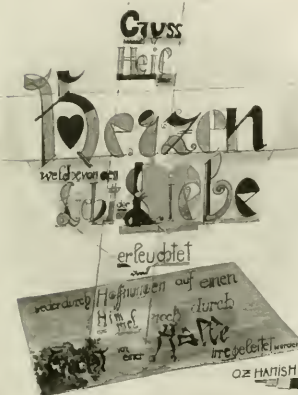 Gruss
Heil
Herzen
welche von dem
Licht der Liebe
erleuchtet
sind
weder durch Hoffnungen auf einen
Himmel noch durch
vor einer Hölle irregeleitet wurden
OZ HANISH